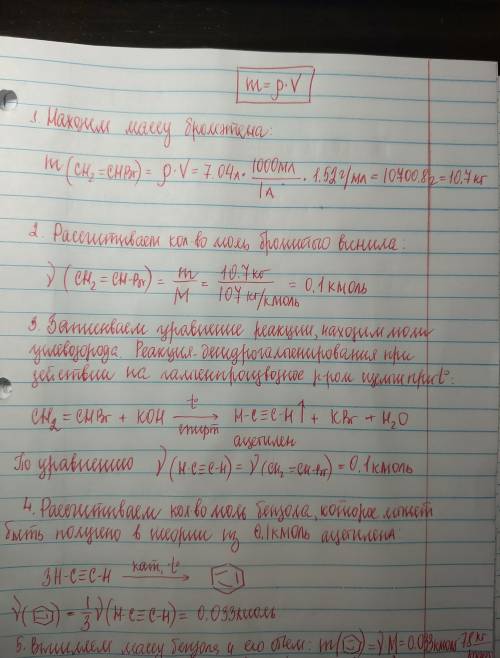 m = ρ·V
1. Находим массу бромэтена:
m (CH₂=CHBr) = ρ·V = 7.04л · 1000мл/1л · 1.52 г/мл = 10700.8г = 10.7 кг
2. Рассчитываем кол-во моль бромистого винила:
ν (CH₂=CH-Br) = m/M = 10.7 кг/107 кг/кмоль = 0,1 кмоль
3. Записываем уравнение реакции, находим моли
углеводорода. Реакция - дегидрогалогенирования при
действии на галогенпроизводное р-ром щелочи при t°:
CH₂=CHBr + KOH →(t°, спирт) H-C≡C-H↑ + KBr + H₂O
ацетилен
По уравнению ν (H-C≡C-H) = ν (CH₂=CH-Br) = 0.1 кмоль
4. Рассчитываем кол-во моль бензола, которое может
быть получено в теории из 0,1 кмоль ацетилена
3H-C≡C-H →(кат, t°)
ν( ) = 1/3 ν (H-C≡C-H) = 0.033 кмоль
5. Вычисляем массу бензола и его объем: m( ) = ν·M = 0.033 кмоль 78 кг/кмоль